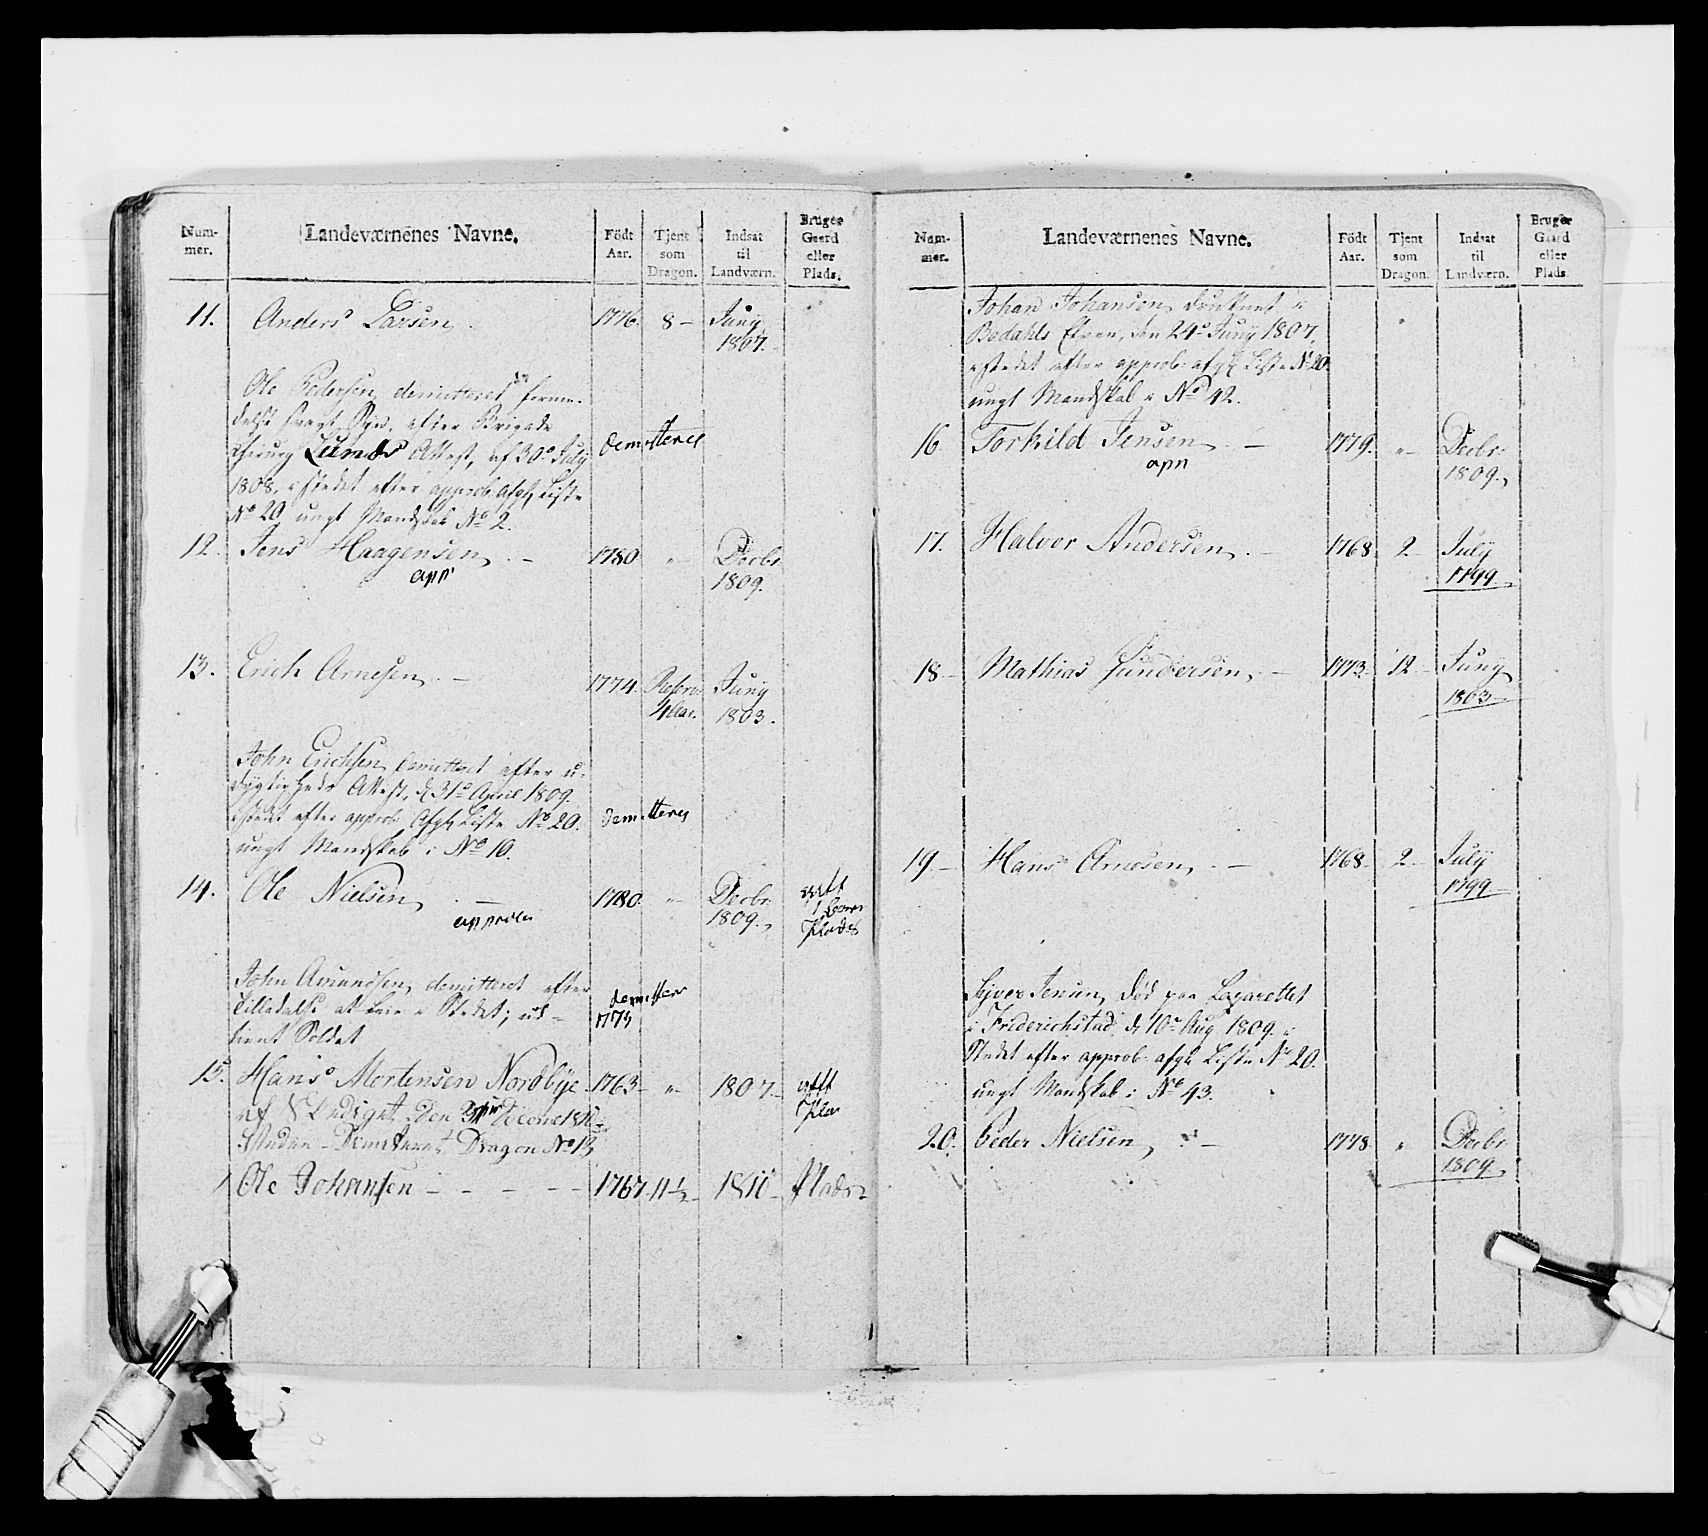 Num-
mer.
Landeværnenes Navne.
Födt
Aar.
Tjent
som
Dragon.
Indsat
til
Landværn.
Bruger
Gaard
eller
Plads.
11. Anders Larsen 1776. 8 – Juny
1807.
Ole Pedersen demitteret formе-
delst svagt Syn, efter Brigade
Chirurg Lunds Attest, af 30te July
1808, i stedet efter approb. Afg. Liste
No 20 ungt Mandskab No 2.
demitteret
12. Jens Haagensen – 1780 „ – Decbr
1809.
app
13. Erich Arnesen – 1774. Reserv Juny
4 Aar. 1803.
John Erichsen demitteret efter u-
dygtigheds Attest, d 31te April 1809.
i stedet efter approb. Afg. Liste No 20.
ungt Mandskab i No 10.
demitteres
14. Ole Nielsen – 1780. „ – Decbr
1809.
Plads
John Amundsen demitteret efter
Tilladelse at leie i Stedet; ud-
tient Soldat
1773
15. Hans Mortensen Nordbye 1763 – „ – 1807 –
Demitteret Dragon No 13
Ole Johansen – – – – – 1767. 11½ – 1810 – Plads
Num-
mer.
Landeværnenes Navne.
Födt
Aar.
Tjent
som
Dragon.
Indsat
til
Landværn.
Bruger
Gaard
eller
Plads.
Johan Johansen druknet i
Bodahls Elven, den 24de Juny 1807,
i stedet efter approb. afg. Liste No 20.
ungt Mandskab i No 42.
16. Torkild Jensen – 1779. „ – Decbr:
1809.
app
17. Halvor Andersen – 1768 2 – July
1799.
18 – Mathias Gundersen – 1773. 12 – Juny
1803 –
19. – Hans Arnesen – 1768. 2 – July
1799
Syver Jensen, Död paa Lazarettet
i Friderichstad d 10de Aug 1809. i
Stedet efter approb. afg. Liste No 20.
ungt Mandskab i No 43.
20. Peder Nielsen – 1778. „ Decbr
1809.